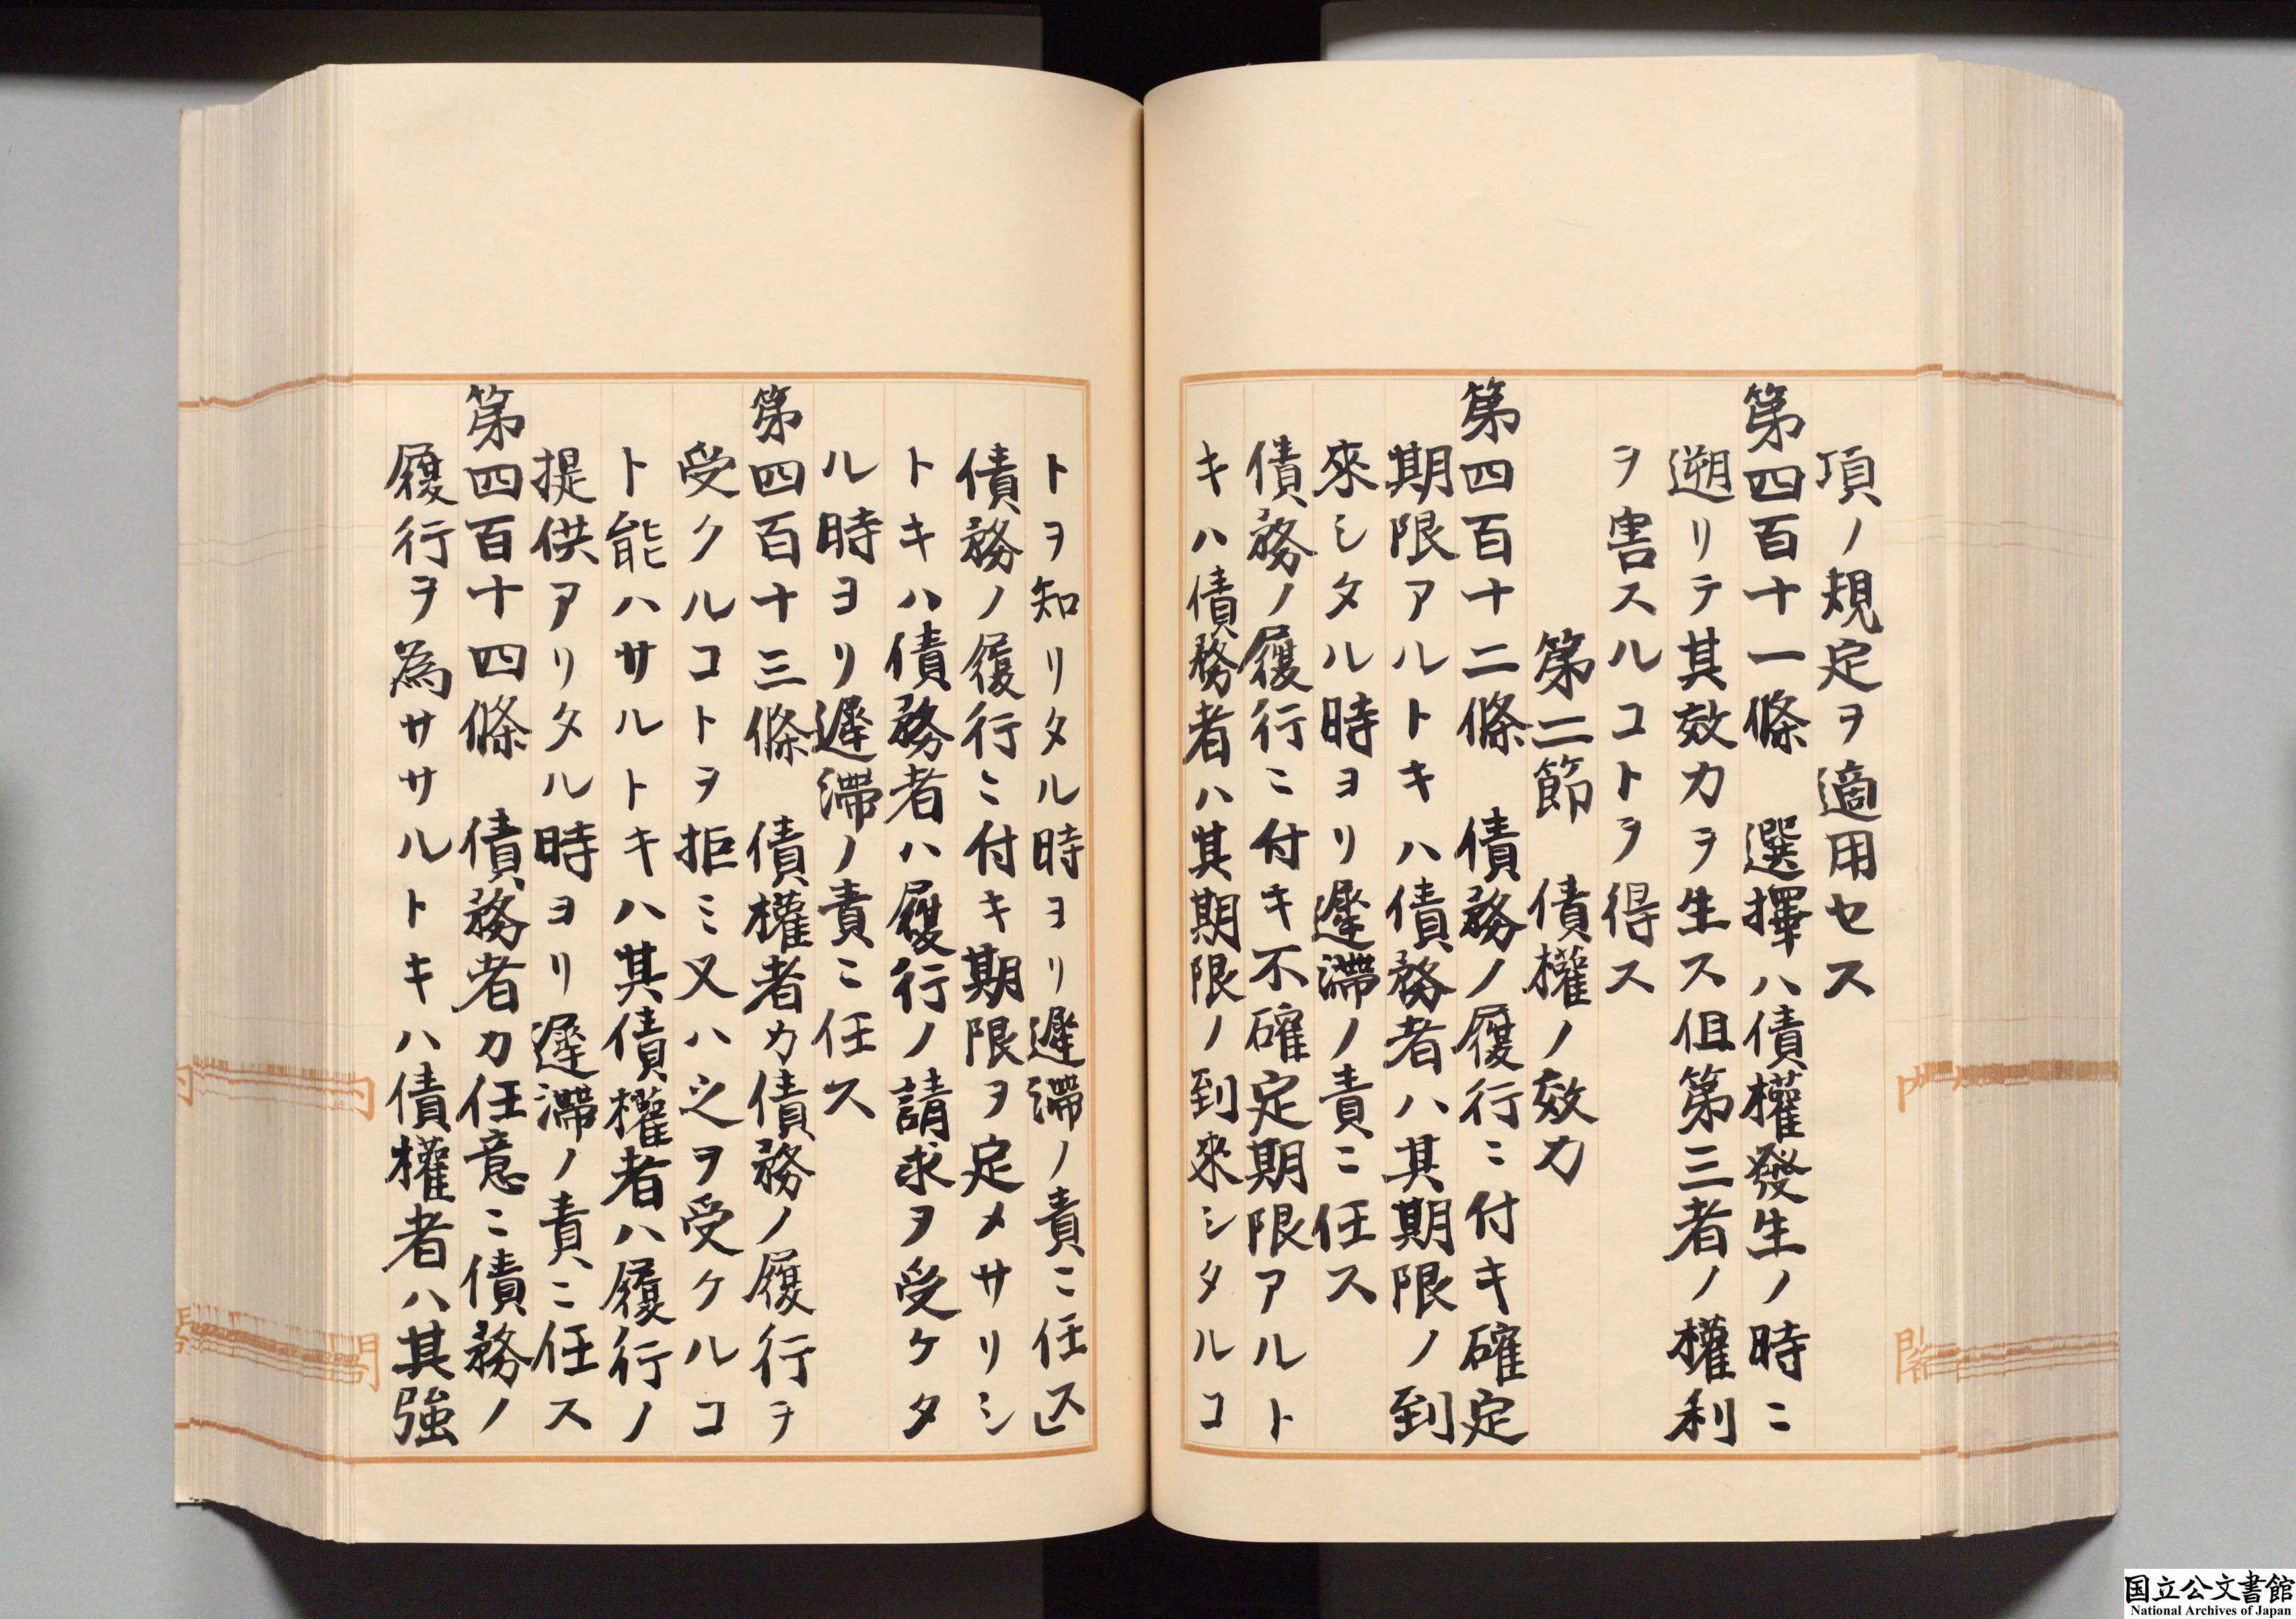 項ノ規定ヲ適用セス
第四百十一條　選擇ハ債權發生ノ時ニ
遡リテ其效力ヲ生ス但第三者ノ權利
ヲ害スルコトヲ得ス
第二節　債權ノ效力
第四百十二條　債務ノ履行ニ付キ確定
期限アルトキハ債務者ハ其期限ノ到
來シタル時ヨリ遲滯ノ責ニ任ス
債務ノ履行ニ付キ不確定期限アルト
キハ債務者ハ其期限ノ到來シタルコ
トヲ知リタル時ヨリ遲滯ノ責ニ任ス
債務ノ履行ニ付キ期限ヲ定メサリシ
トキハ債務者ハ履行ノ請求ヲ受ケタ
ル時ヨリ遲滯ノ責ニ任ス
第四百十三條　債權者カ債務ノ履行ヲ
受クルコトヲ拒ミ又ハ之ヲ受ケルコ
ト能ハサルトキハ其債權者ハ履行ノ
提供アリタル時ヨリ遲滯ノ責ニ任ス
第四百十四條　債務者カ任意ニ債務ノ
履行ヲ為ササルトキハ債權者ハ其強
内
閣
国立公文書館
National Archives of Japan